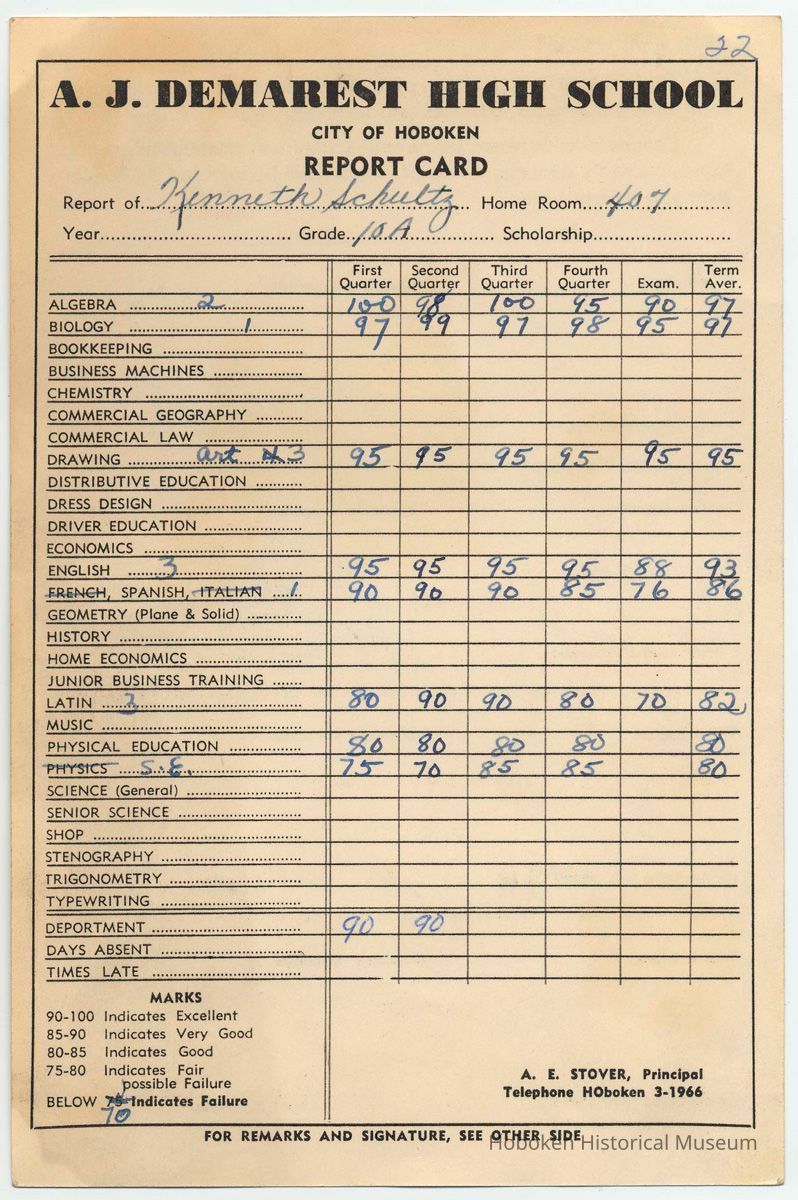 22
A. J. DEMAREST HIGH SCHOOL
CITY OF HOBOKEN
REPORT CARD
Report of Kenneth Schultz Home Room 407
Year Grade 10A Scholarship
First Quarter Second Quarter Third Quarter Fourth Quarter Exam. Term Aver.
ALGEBRA 2 100 98 100 95 90 97
BIOLOGY 1 97 99 97 98 95 97
BOOKKEEPING
BUSINESS MACHINES
CHEMISTRY
COMMERCIAL GEOGRAPHY
COMMERCIAL LAW
DRAWING art 3 95 95 95 95 95 95
DISTRIBUTIVE EDUCATION
DRESS DESIGN
DRIVER EDUCATION
ECONOMICS
ENGLISH 3 95 95 95 95 88 93
FRENCH, SPANISH, ITALIAN 1 90 90 90 85 76 86
GEOMETRY (Plane & Solid)
HISTORY
HOME ECONOMICS
JUNIOR BUSINESS TRAINING
LATIN 3 80 90 90 80 70 82
MUSIC
PHYSICAL EDUCATION 80 80 80 80 80
PHYSICS S.E. 75 70 85 85 80
SCIENCE (General)
SENIOR SCIENCE
SHOP
STENOGRAPHY
TRIGONOMETRY
TYPEWRITING
DEPORTMENT 90 90
DAYS ABSENT
TIMES LATE
MARKS
90-100 Indicates Excellent
85-90 Indicates Very Good
80-85 Indicates Good
75-80 Indicates Fair
possible Failure
BELOW 75 Indicates Failure
70
A. E. STOVER, Principal
Telephone HOboken 3-1966
FOR REMARKS AND SIGNATURE, SEE OTHER SIDE
Hoboken Historical Museum